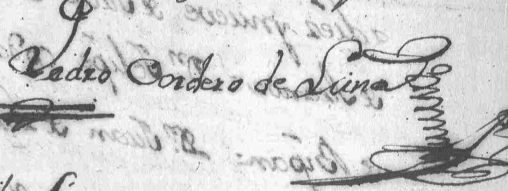 Pedro Cordero de Luna